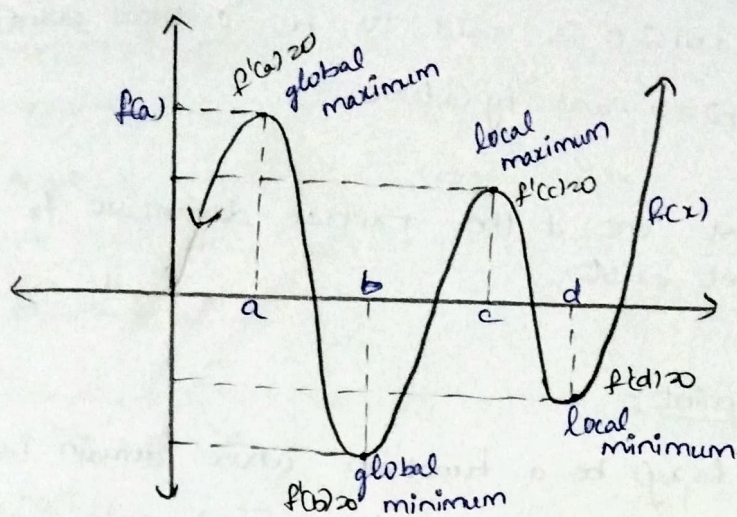 f'(a)=0
global
maximum
f(a)
local
maximum
f'(c)=0
f(x)
a
b
c
d
f'(d)=0
local
minimum
global
minimum
f'(b)=0